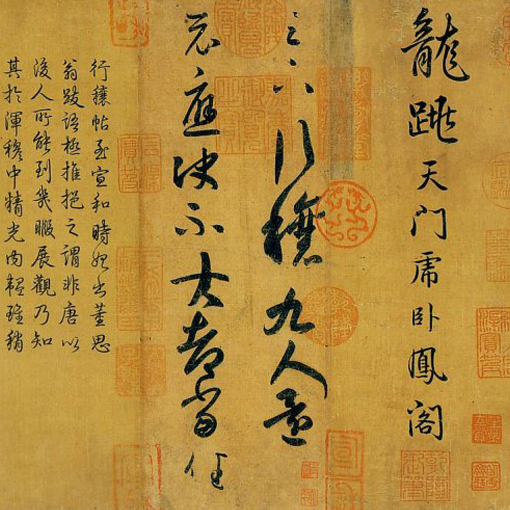 龍跳天门虎卧鳳閣
足下行穰九人還
示應決不大都當佳
行穰帖至宣和時始出董思
翁跋語極推挹之謂非唐以
後人所能到幾暇展觀乃知
其於渾穆中精光内韞雖稍